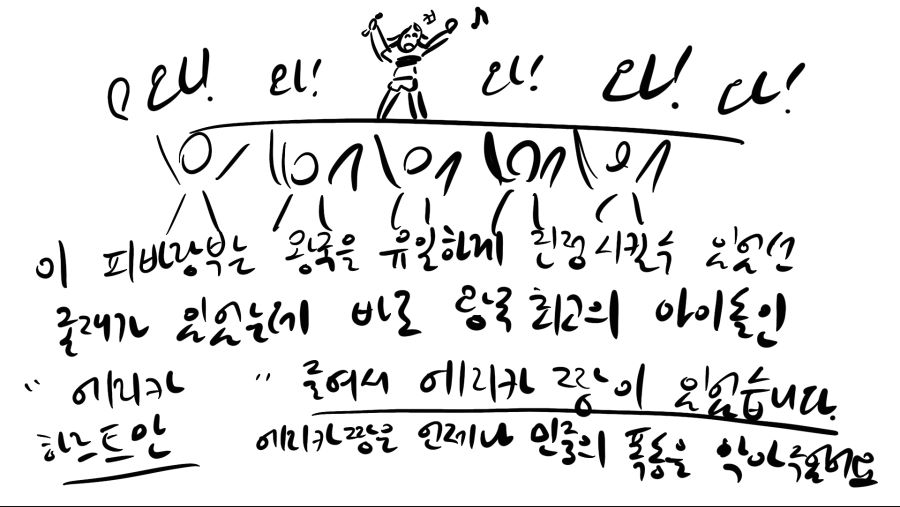 와! 와! 와! 와!
이 피바람부는 왕국을 유일하게 진정시킬수 있었던
존재가 있었는데 바로 왕국 최고의 아이돌인
" 에리카 " 줄여서 에리카 짱이 있었습니다.
하르트만 에리카짱은 언제나 민중의 폭동을 막아주었어요